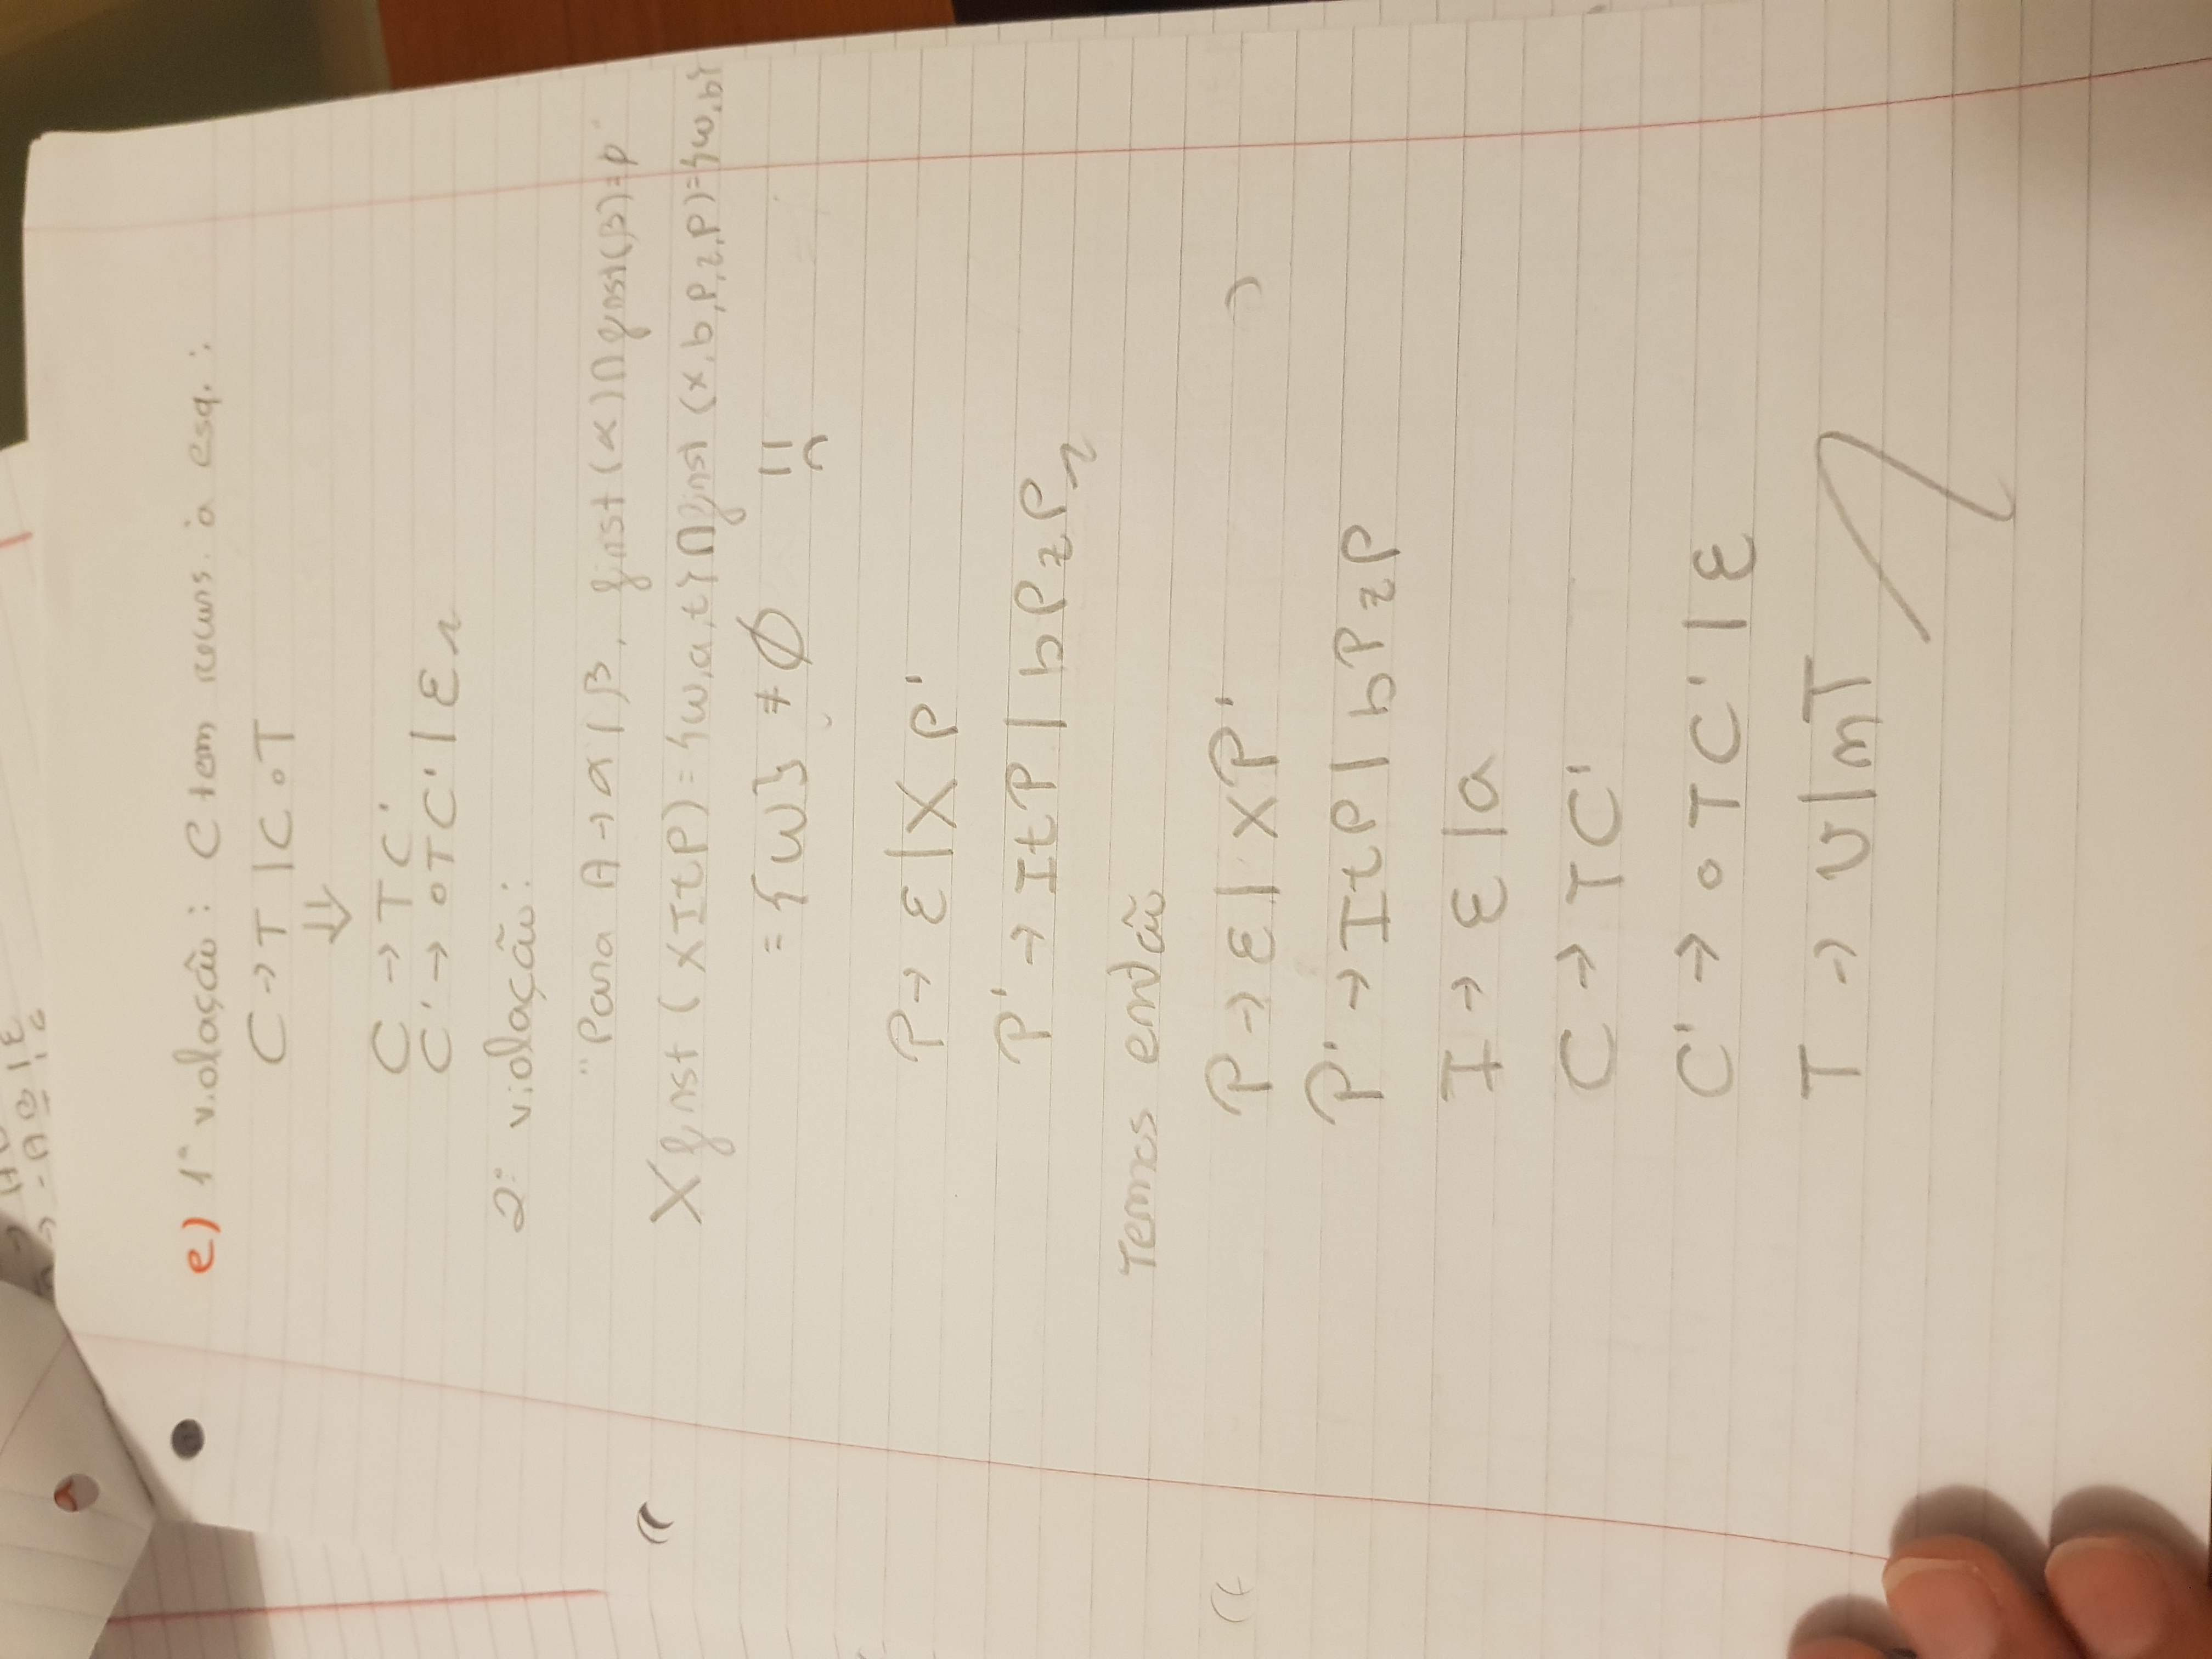 -AB | ε
e) 1ª violação: C tem recurs. à esq.:
C → T | C∘T
⇓
C → TC'
C' → ∘TC' | ε
2ª violação:
"Para A → α | β, first(α) ∩ first(β) = ϕ"
X first (XItP) = {w,a,t} ∩ first (x,b,P,z,P) = {w,b}
= {w} ≠ ∅
P → ε | X P'
P' → ItP | bPzP
Temos então
P → ε | XP'
P' → ItP | bPzP
I → ε | a
C → TC'
C' → ∘TC' | ε
T → v | mT